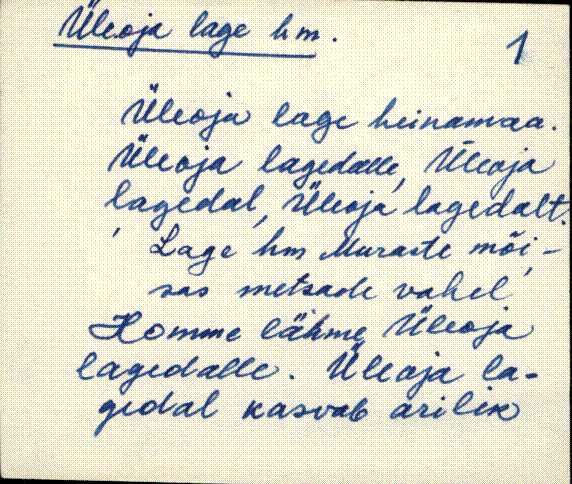 Üleoja lage hm.
1
Üleoja lage heinamaa.
Üleoja lagedalle, Üleoja
lagedal, Üleoja lagedalt.
Lage hm Muraste mõi-
sas metsade vahel
Homme lähme Üleoja
lagedalle. Üleoja la-
gedal kasvab arilik